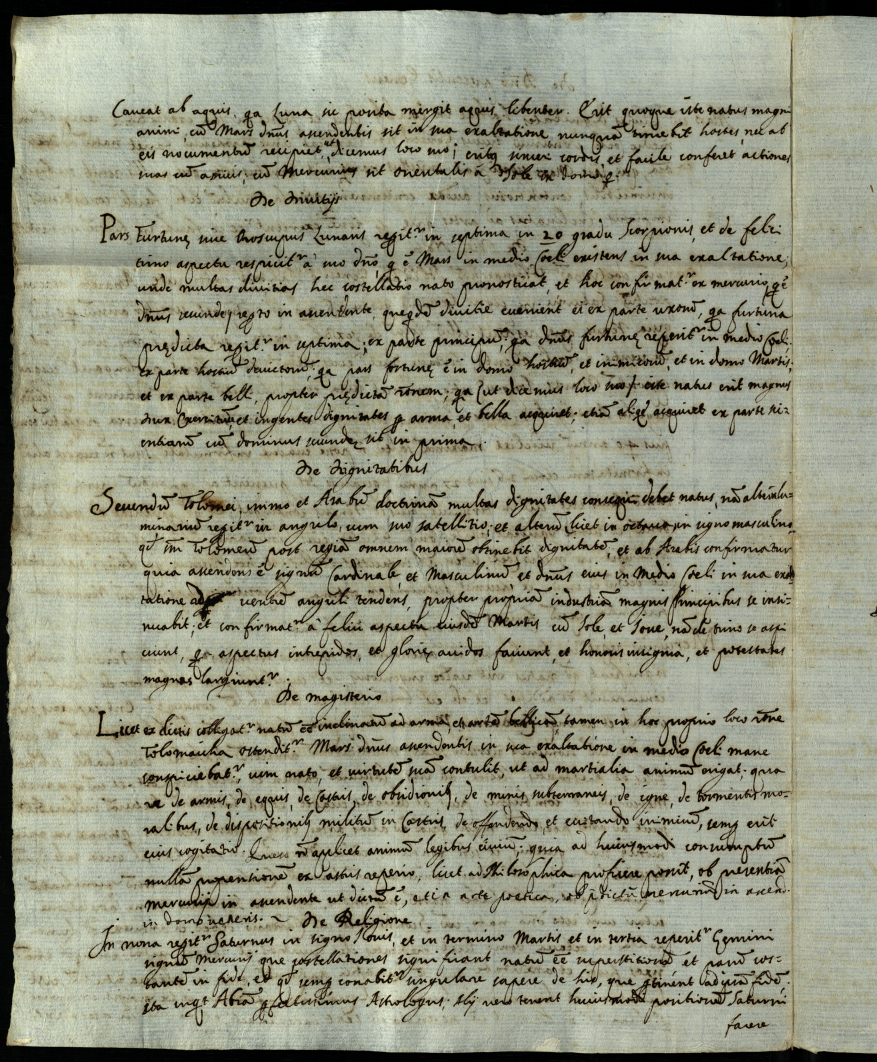 Caveat ab aquis, qa Luna sic posita mergit aquis libenter. Erit quoque iste natus magni
animi, cũ Mars dñus ascendentis sit in sua exaltatione nunquã timebit hostes, nec ab
eis nocumentũ recipiet, et dicemus loco suo; eritq sinceri cordis, et facile conferet actiones
suas cũ amicis; cũ Mercurius sit orientalis à Sole
De Divitijs
Pars Fortunę sive Oroscupus Lunaris regit.r in septima in 20 gradu Scorpionis, et de feli:
trino aspectu respicit.r à suo dño, q ẽ Mars in medio Coeli existens in sua exaltatione;
unde multas divitias hec costellatio nato pronosticat, et hoc confirmat.r ex mercurio, q ẽ
dñus secundę, regto in ascendente, quęqdẽ divitie evenient ei ex parte uxorũ, qa fortuna
prędicta regit.r in septima; ex parte principum, qa dñus fortunę reperit.r in medio Coeli,
ex parte hostiũ devictorũ, qa pars fortunę ẽ in domo hostiũ, et inimicorũ, et in domo Martis;
et ex parte belli, propter prędictã rõnem; qa (ut dicemus loco suo) iste natus erit magnus
Dux Exercitũ, et ingentes dignitates p arma et bella acquiret; etiã alqd acquiret ex parte sci-
entiarũ cũ dominus secundę sit in prima.
De Dignitatibus
Secundũ Tolomei, immo et Arabũ doctrinã multas dignitates consequi debet natus, nã alterũ lu=
minariũ regit.r in angulo, cum suo satellitio, et alterũ licet in octava in signo masculino
qd iux Tolomeũ post regiã omnem maiorẽ obtinebit dignitatẽ, et ab Arabis confirmatur
quia ascendens ẽ signũ Cardinale, et Masculinũ, et dñus eius in Medio Coeli in sua exal
tatione ad centrũ anguli tendens, propter propriã industriã magnis Principibus se insi-
nuabit; et confirmat.r à felici aspectu eiusdẽ Martis cũ Sole, et Iove, nã de trino se aspi
ciunt, q aspectus intrepidos, et glorię avidos faciunt, et honoris insignia, et potestates
magnas largiunt.r.
De magisterio
Licet ex dictis colligat.r natũ eẽ inclinatũ ad arma, et artẽ bellicã, tamen in hoc proprio loco rõne
Tolomaica ostendit.r Mars dñus ascendentis in sua exaltatione in medio Coeli mane
conspiciebat.r, cum nato, et virtutẽ suã contulit, ut ad martialia animũ erigat. qua
re de armis, de equis, de Castris, de obsidionib, de minis subterraneis, de igne, de tormentis mu-
ralibus, de dispositionib militũ in Castris, de offendendo, et evitando inimicũ, semp erit
eius cogitatio applicet animũ legibus civium; quia ad huiusmodi consumptũ
nullã propentionẽ ex astris reperio, licet ad Philosophica proficere possit, ob presentiã
mercurii in ascendente ut dictũ ẽ, etiã arte poetica, ob pdictũ mercuriũ in ascend.
in domo veneris.
De Religione
In nona regit.r Saturnus in signo Iovis, et in termino Martis et in tertia reperit.r Gemini
signũ Mercurii que costellationes significant natũ eẽ superstitiosũ et parũ cos-
tantẽ in fide, et qd semp conabit.r singulare sapere de his, que ptinent ad suã fidẽ.
ita inqt Abrã pfectissimus Astrologus, Alij vero tenent huiusmodi positionẽ Saturni
facere